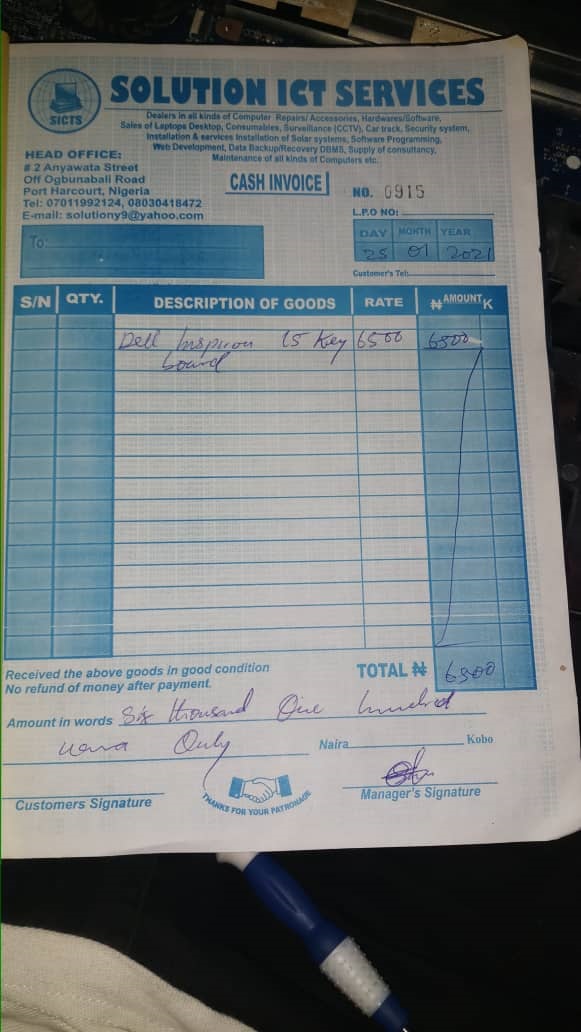 SOLUTION ICT SERVICES
SICTS
Dealers in all kinds of Computer Repairs/ Accessories, Hardwares/Software,
Sales of Laptops Desktop, Consumables, Surveillance (CCTV), Car track, Security system,
Installation & services Installation of Solar systems, Software Programming,
Web Development, Data Backup/Recovery DBMS, Supply of consultancy,
Maintenance of all kinds of Computers etc.
HEAD OFFICE:
# 2 Anyawata Street
Off Ogbunabali Road
Port Harcourt, Nigeria
Tel: 07011992124, 08030418472
E-mail: solutiony9@yahoo.com
CASH INVOICE
NO. 0915
L.P.O NO:
DAY MONTH YEAR
25 01 2021
To:
Customer's Tel:
S/N QTY. DESCRIPTION OF GOODS RATE ₦ AMOUNT K
Dell Inspiron 15 Key 6500 6500
board
Received the above goods in good condition
No refund of money after payment.
TOTAL ₦ 6500
Amount in words Six thousand hundred
Only Naira Kobo
Customers Signature
THANKS FOR YOUR PATRONAGE
Manager's Signature